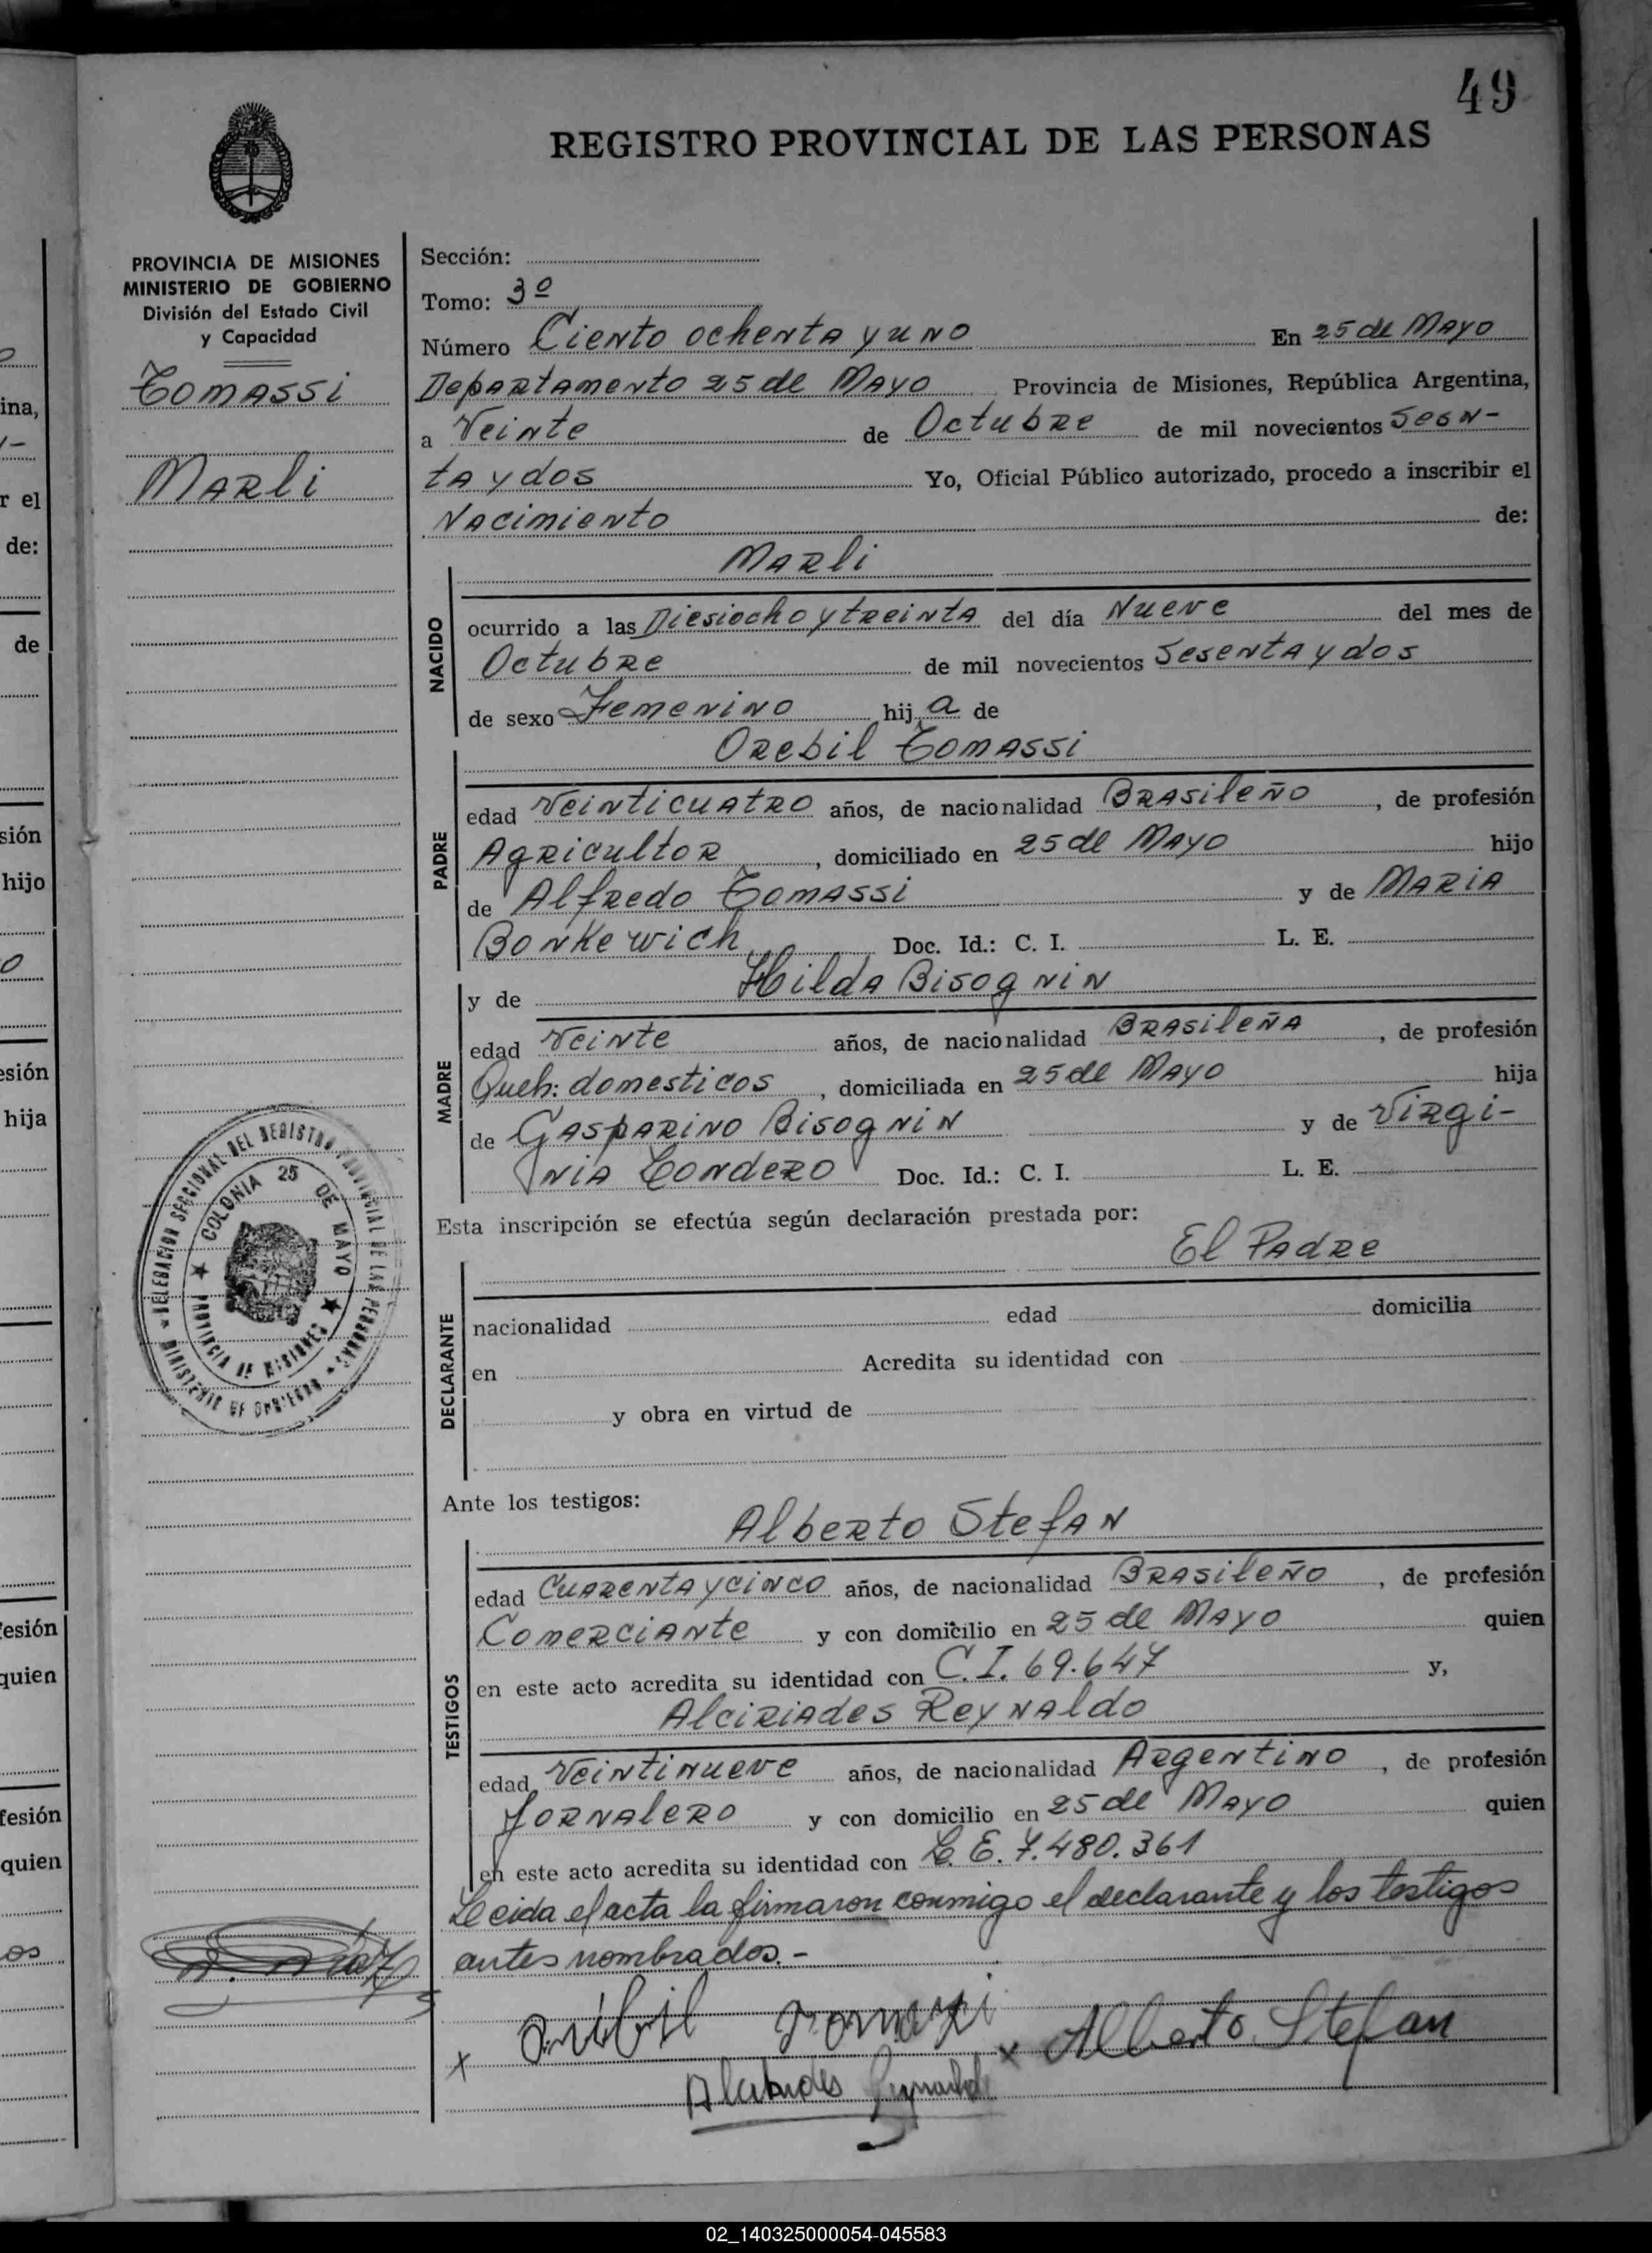 49
REGISTRO PROVINCIAL DE LAS PERSONAS
PROVINCIA DE MISIONES
MINISTERIO DE GOBIERNO
División del Estado Civil
y Capacidad
Tomassi
Marli
Sección:
Tomo: 3º
Número Ciento ochenta y uno En 25 de Mayo
Departamento 25 de Mayo Provincia de Misiones, República Argentina,
a Veinte de Octubre de mil novecientos Sesn-
ta y dos Yo, Oficial Público autorizado, procedo a inscribir el
Nacimiento de:
Marli
NACIDO
ocurrido a las Diesiocho y treinta del día Nueve del mes de
Octubre de mil novecientos Sesenta y dos
de sexo Femenino hija de
Orebil Tomassi
PADRE
edad Veinticuatro años, de nacionalidad Brasileño, de profesión
Agricultor, domiciliado en 25 de Mayo hijo
de Alfredo Tomassi y de Maria
Bonkewich Doc. Id.: C. I. L. E.
y de Hilda Bisognin
MADRE
edad Veinte años, de nacionalidad Brasileña, de profesión
Queh: domesticos, domiciliada en 25 de Mayo hija
de Gasparino Bisognin y de Virgi-
nia Condero Doc. Id.: C. I. L. E.
Esta inscripción se efectúa según declaración prestada por:
El Padre
DECLARANTE
nacionalidad edad domicilia
en Acredita su identidad con
y obra en virtud de
Ante los testigos:
Alberto Stefan
TESTIGOS
edad Cuarenta y cinco años, de nacionalidad Brasileño, de profesión
Comerciante y con domicilio en 25 de Mayo quien
en este acto acredita su identidad con C. I. 69.647 y,
Alciriades Reynaldo
edad Veintinueve años, de nacionalidad Argentino, de profesión
Jornalero y con domicilio en 25 de Mayo quien
en este acto acredita su identidad con L. E. 7.480.361
Leeida el acta la firmaron conmigo el declarante y los testigos
antes nombrados.-
x Alberto Stefan
DELEGACION SECCIONAL DEL REGISTRO PROVINCIAL DE LAS PERSONAS
MINISTERIO DE GOBIERNO
COLONIA 25 DE MAYO
PROVINCIA DE MISIONES
02_140325000054-045583